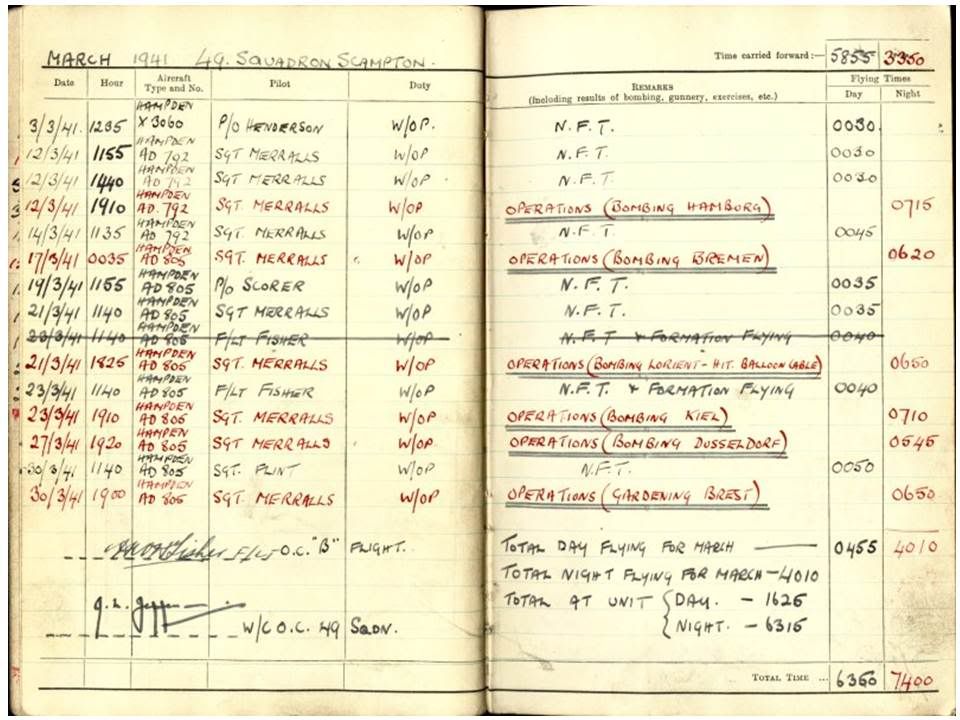 MARCH 1941 49. SQUADRON SCAMPTON. Time carried forward:— 5855 3350
Date Hour Aircraft Type and No. Pilot Duty REMARKS (Including results of bombing, gunnery, exercises, etc.) Flying Times Day Night
3/3/41. 1235 HAMPDEN X3060 P/O HENDERSON W/OP. N.F.T. 0030
12/3/41 1155 HAMPDEN AD 792 SGT MERRALLS W/OP N.F.T. 0030
12/3/41 1440 HAMPDEN AD 792 SGT MERRALLS W/OP N.F.T. 0030
12/3/41 1910 HAMPDEN AD. 792 SGT. MERRALLS W/OP OPERATIONS (BOMBING HAMBORG) 0715
14/3/41 1135 HAMPDEN AD 792 SGT. MERRALLS W/OP N.F.T. 0045
17/3/41 0035 HAMPDEN AD 805 SGT. MERRALLS W/OP OPERATIONS (BOMBING BREMEN) 0620
19/3/41 1155 HAMPDEN AD 805 P/O SCORER W/OP N.F.T. 0035
21/3/41 1140 HAMPDEN AD 805 SGT MERRALLS W/OP N.F.T. 0035
23/3/41 1140 HAMPDEN AD 805 F/LT FISHER W/OP N.F.T & FORMATION FLYING 0040
21/3/41 1825 HAMPDEN AD 805 SGT. MERRALLS W/OP OPERATIONS (BOMBING LORIENT- HIT. BALLOON CABLE) 0650
23/3/41 1140 HAMPDEN AD 805 F/LT FISHER W/OP N.F.T. & FORMATION FLYING 0040
23/3/41 1910 HAMPDEN AD 805 SGT. MERRALLS W/OP OPERATIONS (BOMBING KIEL) 0710
27/3/41 1920 HAMPEN AD 805 SGT MERRALLS W/OP OPERATIONS (BOMBING DUSSELDORF) 0545
30/3/41 1140 HAMPDEN AD 805 SGT. FLINT W/OP N.F.T. 0050
30/3/41 1900 HAMPDEN AD 805 SGT. MERRALLS W/OP OPERATIONS (GARDENING BREST) 0650
Fisher F/LT O.C. "B" FLIGHT. TOTAL DAY FLYING FOR MARCH — 0455 4010
TOTAL NIGHT FLYING FOR MARCH - 4010
W/C O.C. 49 SQDN. TOTAL AT UNIT { DAY. - 1625
NIGHT. - 6315
TOTAL TIME ... 6350 7400